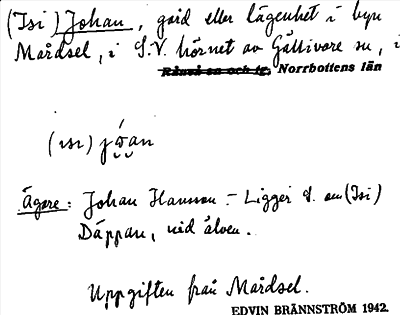 (Isi) Johan, gård eller lägenhet i byn
Mårdsel, i S.V. hörnet av Gällivare sn, i
Råneå sn och tg, Norrbottens län
(ɪsɪ) jo̯an
Ägare: Johan Hansson - Ligger S. om (Isi)
Däppan, vid älven.
Uppgiften från Mårdsel.
EDVIN BRÄNNSTRÖM 1942.